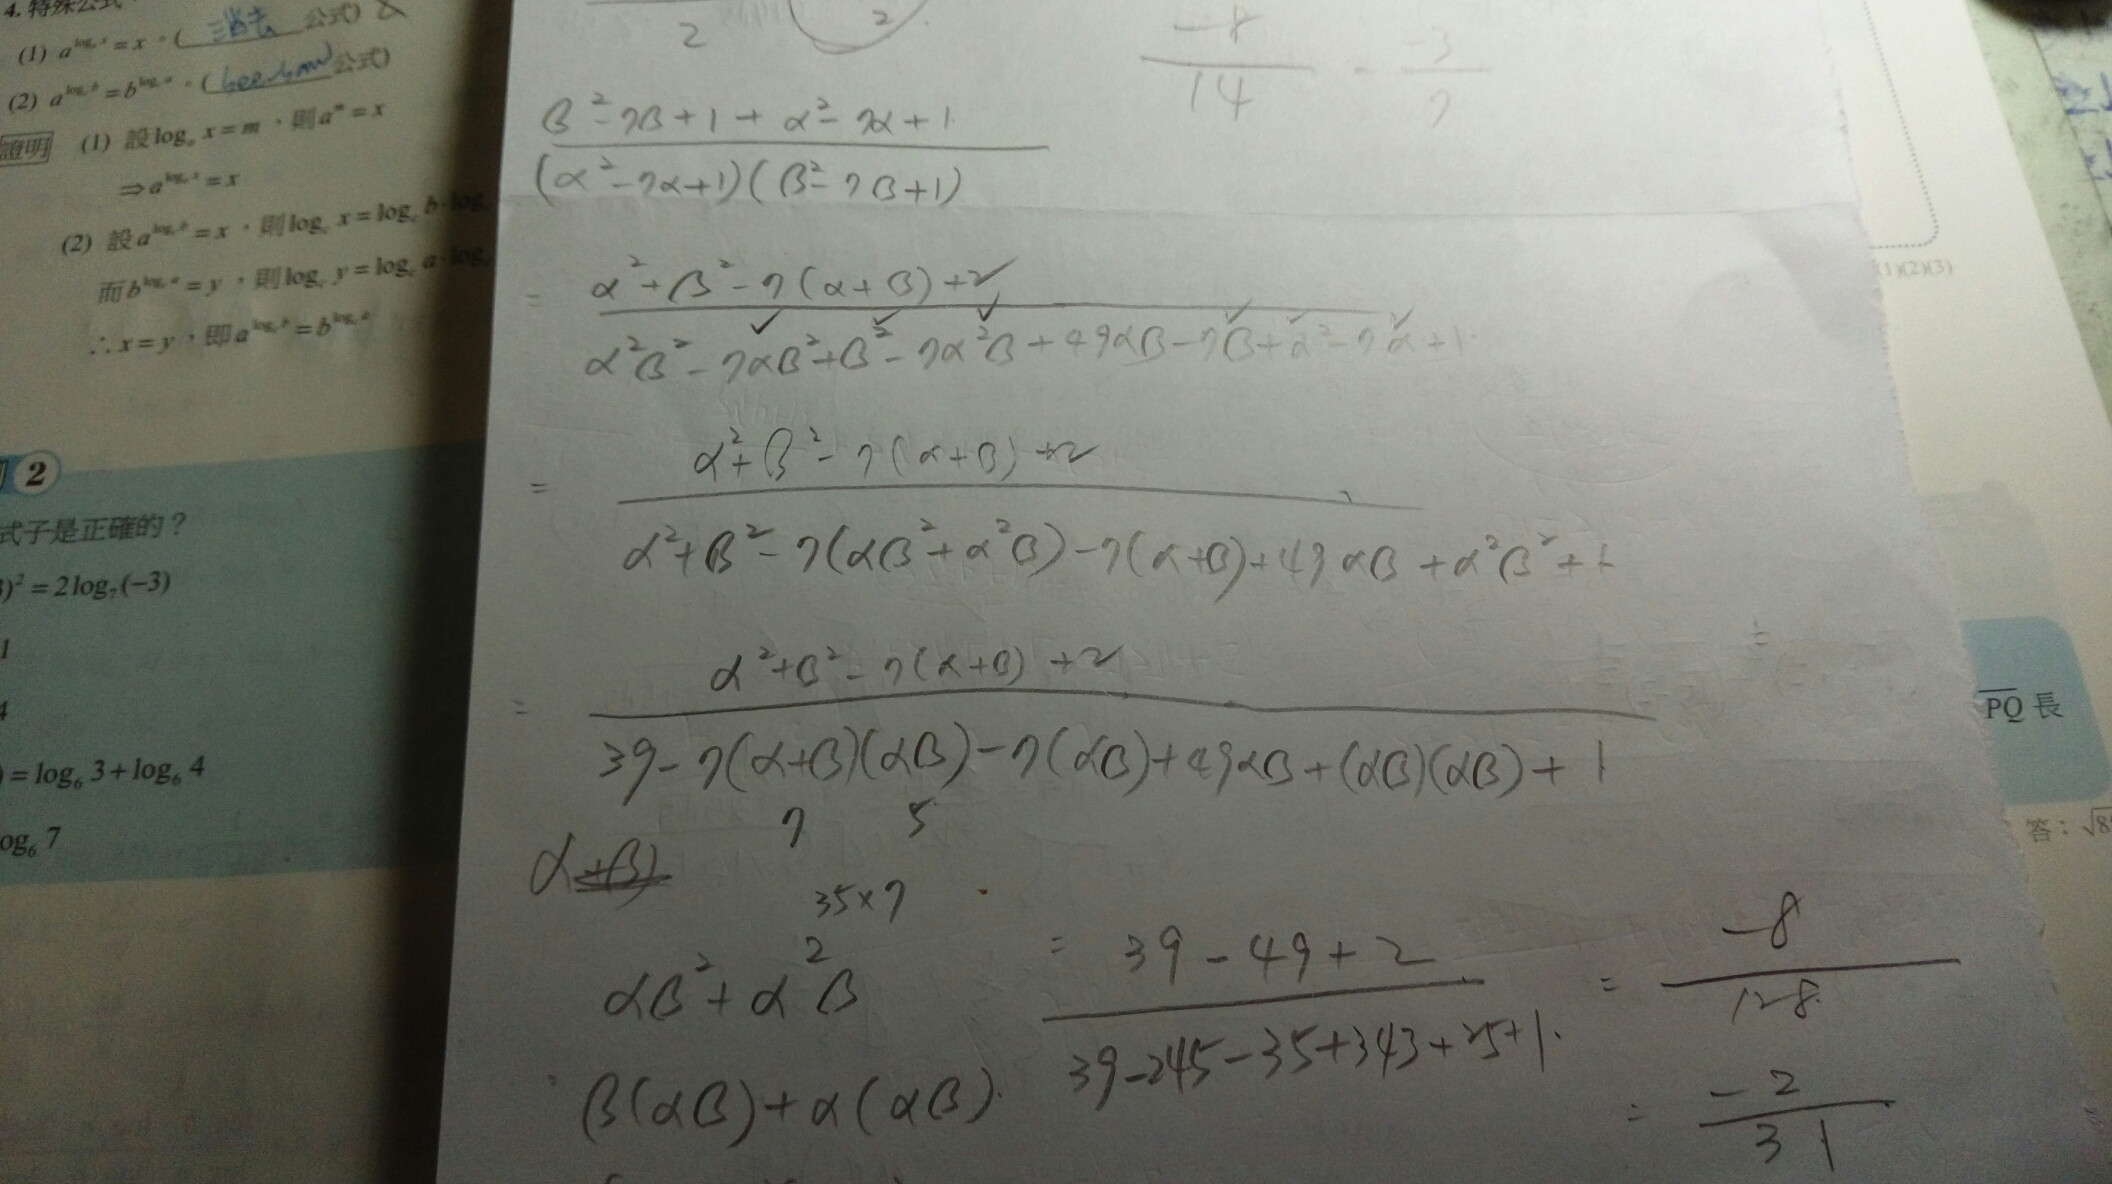 4. 特殊公式
(1) a^{log_a x} = x。(消去公式)
(2) a^{log_c b} = b^{log_c a}。(公式)
證明 (1) 設 log_a x = m，則 a^m = x
⇒ a^{log_a x} = x
(2) 設 a^{log_c b} = x，則 log_c x = log_c b · log
而 b^{log_c a} = y，則 log_c y = log_c a · log
∴ x = y，即 a^{log_c b} = b^{log_c a}
2
式子是正確的？
)² = 2 log₇(-3)
1
4
) = log₆ 3 + log₆ 4
og₆ 7
2
2
-8/14 = -3/7
(β² - 7β + 1 + α² - 7α + 1) / ((α² - 7α + 1)(β² - 7β + 1))
= (α² + β² - 7(α + β) + 2) / (α²β² - 7αβ² + β² - 7α²β + 49αβ - 7β + α² - 7α + 1)
= (α² + β² - 7(α + β) + 2) / (α² + β² - 7(αβ² + α²β) - 7(α + β) + 49αβ + α²β² + 1)
= (α² + β² - 7(α + β) + 2) / (39 - 7(α + β)(αβ) - 7(αβ) + 49αβ + (αβ)(αβ) + 1)
7 5
α+β)
35×7
αβ² + α²β
β(αβ) + α(αβ)
= (39 - 49 + 2) / (39 - 245 - 35 + 343 + 25 + 1)
= -8/128
= -2/31
(1)(2)(3)
PQ 長
答：√8